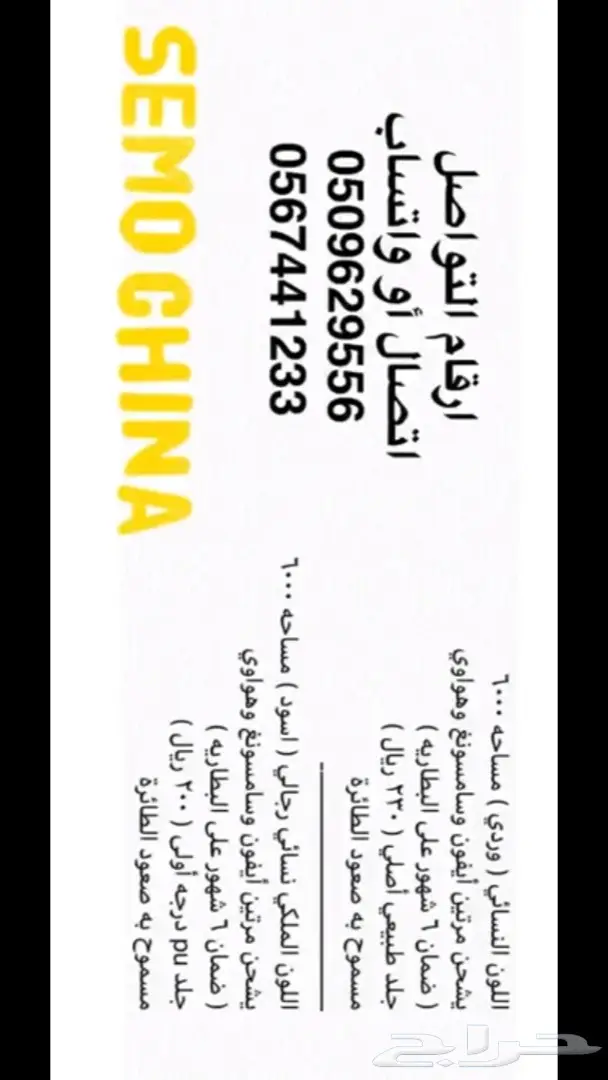 ارقام التواصل
اتصال أو واتساب
0509629556
0567441233
SEMO CHINA
اللون النسائي ( وردي ) مساحه ٦٠٠٠
يشحن مرتين أيفون وسامسونغ وهواوي
( ضمان ٦ شهور على البطاريه )
جلد طبيعي أصلي ( ٢٣٠ ريال )
مسموح به صعود الطائرة
اللون الملكي نسائي رجالي ( اسود ) مساحه ٦٠٠٠
يشحن مرتين أيفون وسامسونغ وهواوي
( ضمان ٦ شهور على البطاريه )
جلد pu درجه أولى ( ٢٠٠ ريال )
مسموح به صعود الطائرة
حراج